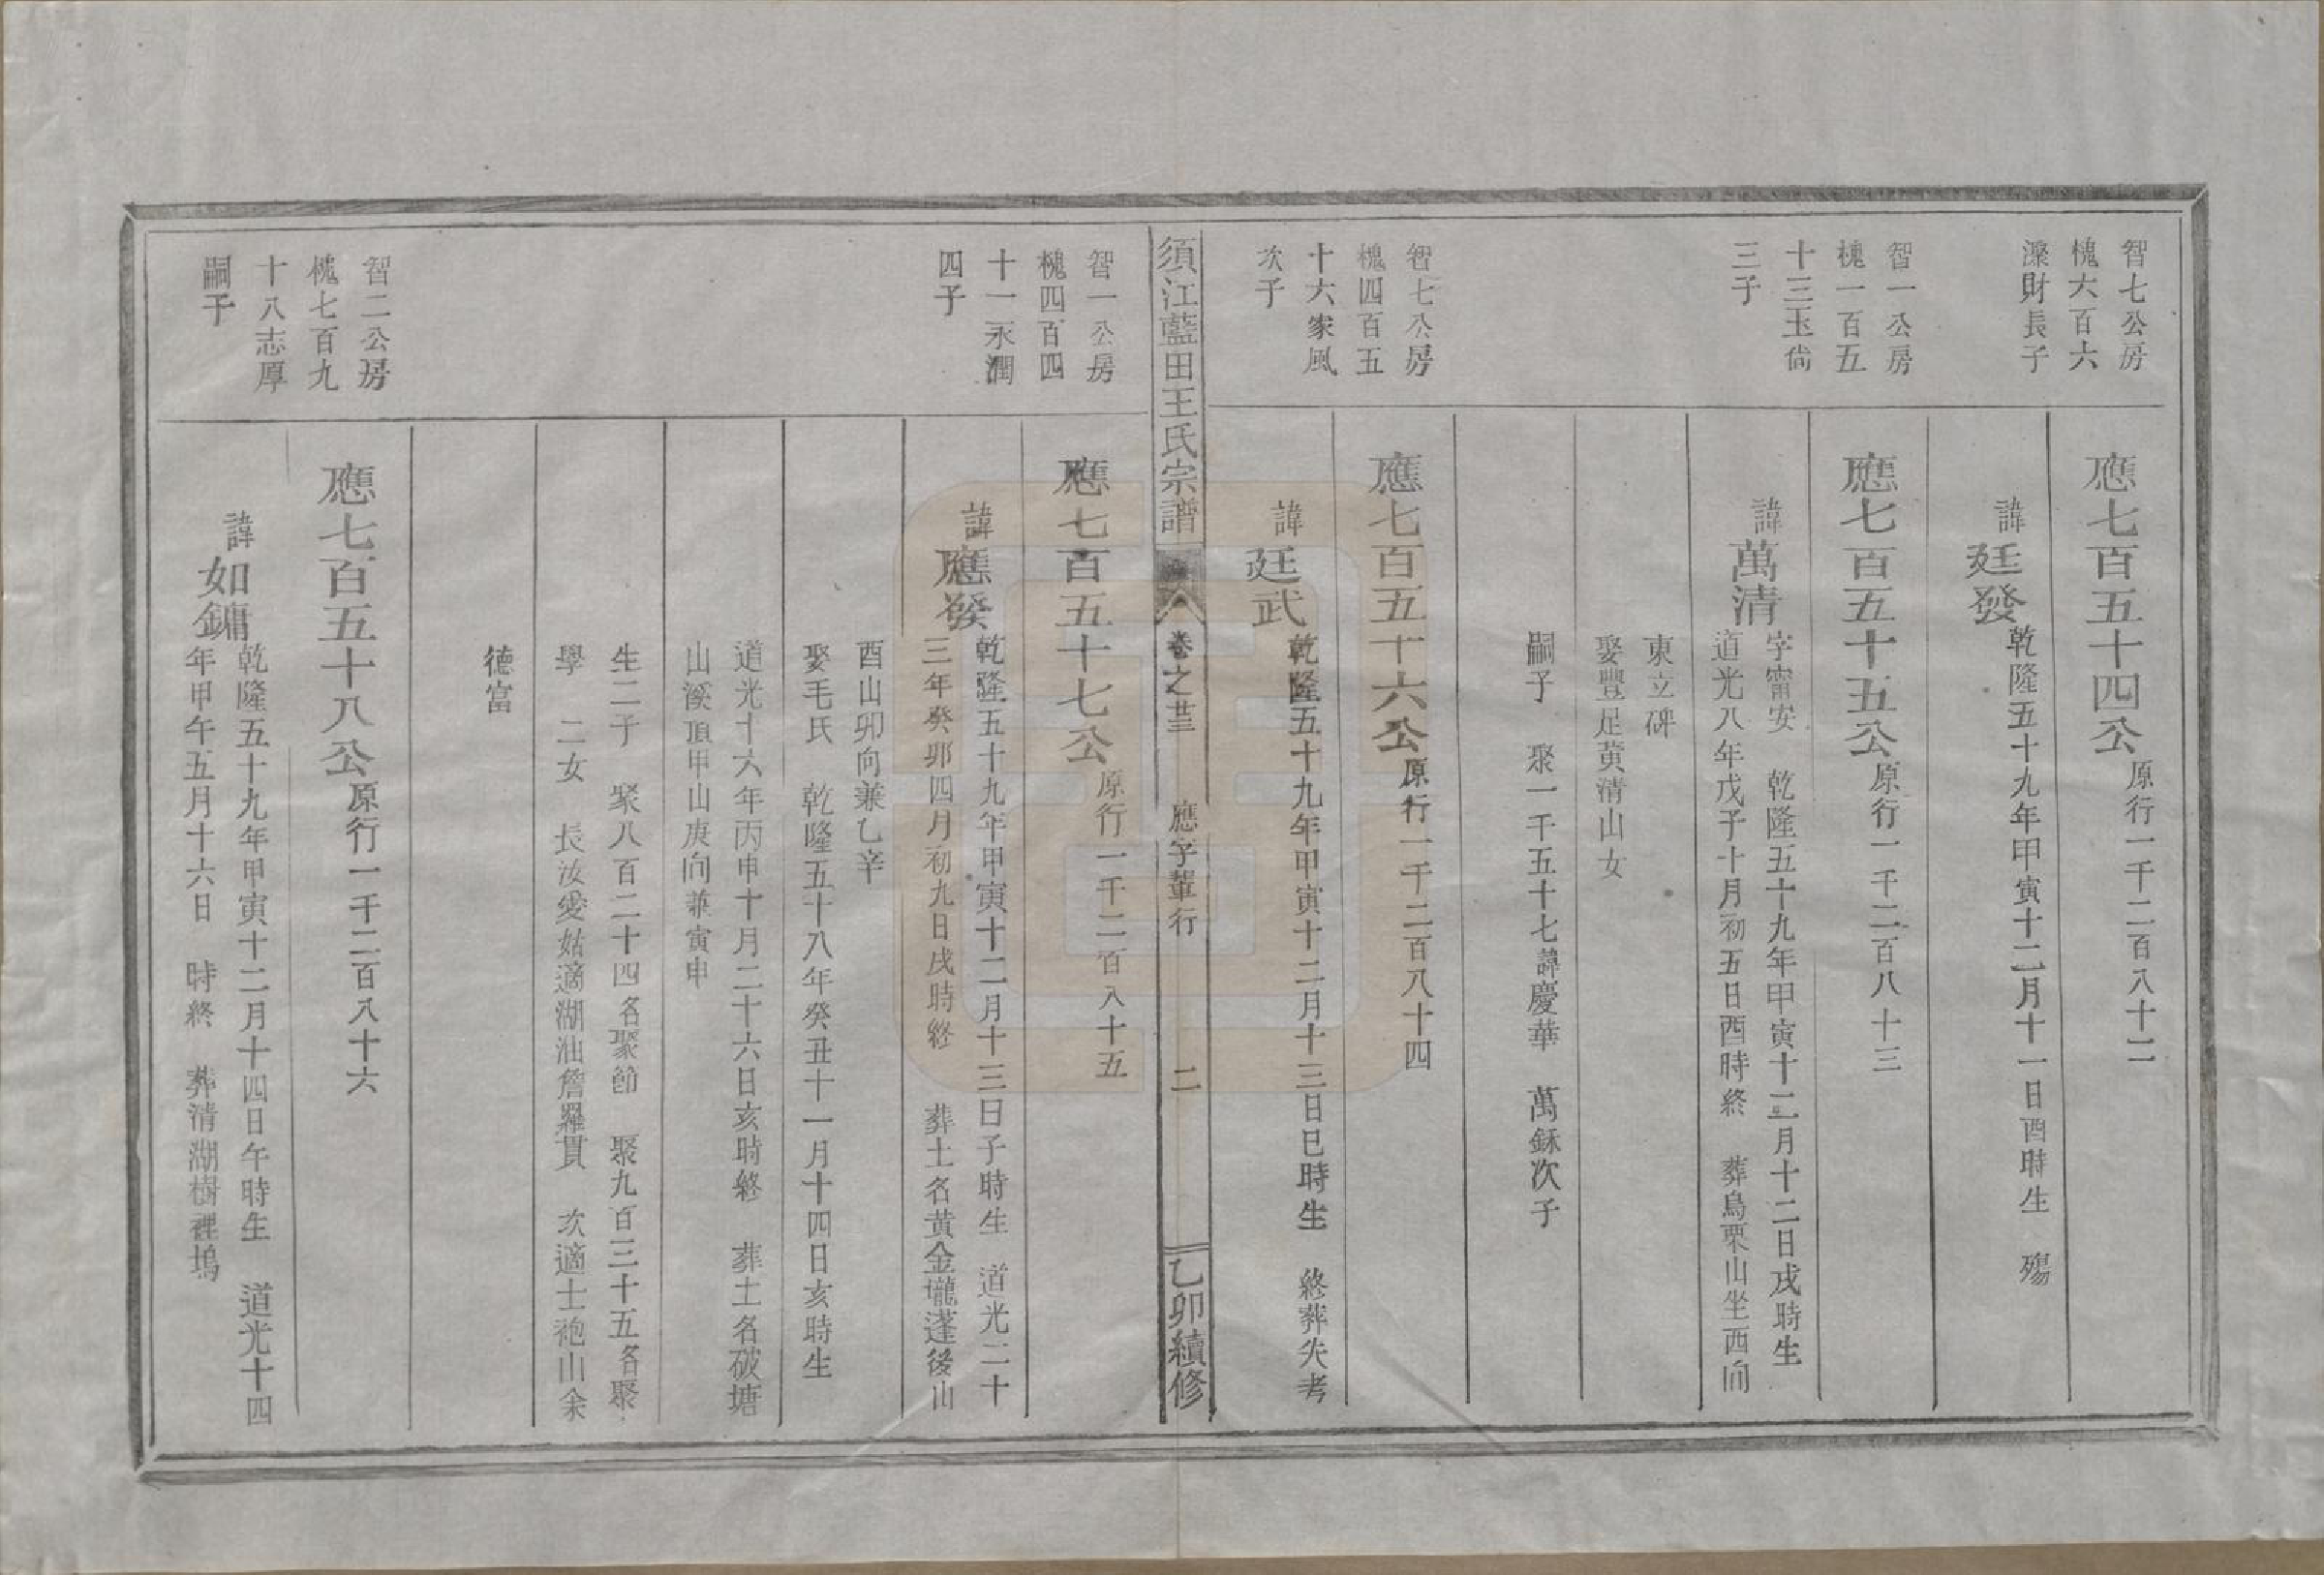 智七公房
槐六百六
濚財長子
應七百五十四公原行一千二百八十二
諱廷發乾隆五十九年甲寅十二月十一日酉時生 殤
智一公房
槐一百五
十三玉尙
三子
應七百五十五公原行一千二百八十三
諱萬清字甯安 乾隆五十九年甲寅十二月十二日戌時生
道光八年戊子十月初五日酉時終 葬烏栗山坐西向
東立碑
娶豐足黃清山女
嗣子 聚一千五十七諱慶華 萬銾次子
智七公房
槐四百五
十六家風
次子
應七百五十六公原行一千二百八十四
諱廷武乾隆五十九年甲寅十二月十三日巳時生 終葬失考
須江藍田王氏宗譜
卷之廿三 應字輩行 二
乙卯續修
智一公房
槐四百四
十一永潤
四子
應七百五十七公原行一千二百八十五
諱應發乾隆五十九年甲寅十二月十三日子時生 道光二十
三年癸卯四月初九日戌時終 葬土名黃金壠蓬後山
酉山卯向兼乙辛
娶毛氏 乾隆五十八年癸丑十一月十四日亥時生
道光十六年丙申十月二十六日亥時終 葬土名破塘
山溪頂甲山庚向兼寅申
生二子 聚八百二十四名聚節 聚九百三十五名聚
學 二女 長汝愛姑適湖㳙詹羅貫 次適士袍山余
德富
智二公房
槐七百九
十八志厚
嗣子
應七百五十八公原行一千二百八十六
諱如鏞乾隆五十九年甲寅十二月十四日午時生 道光十四
年甲午五月十六日 時終 葬清湖樹裡塢